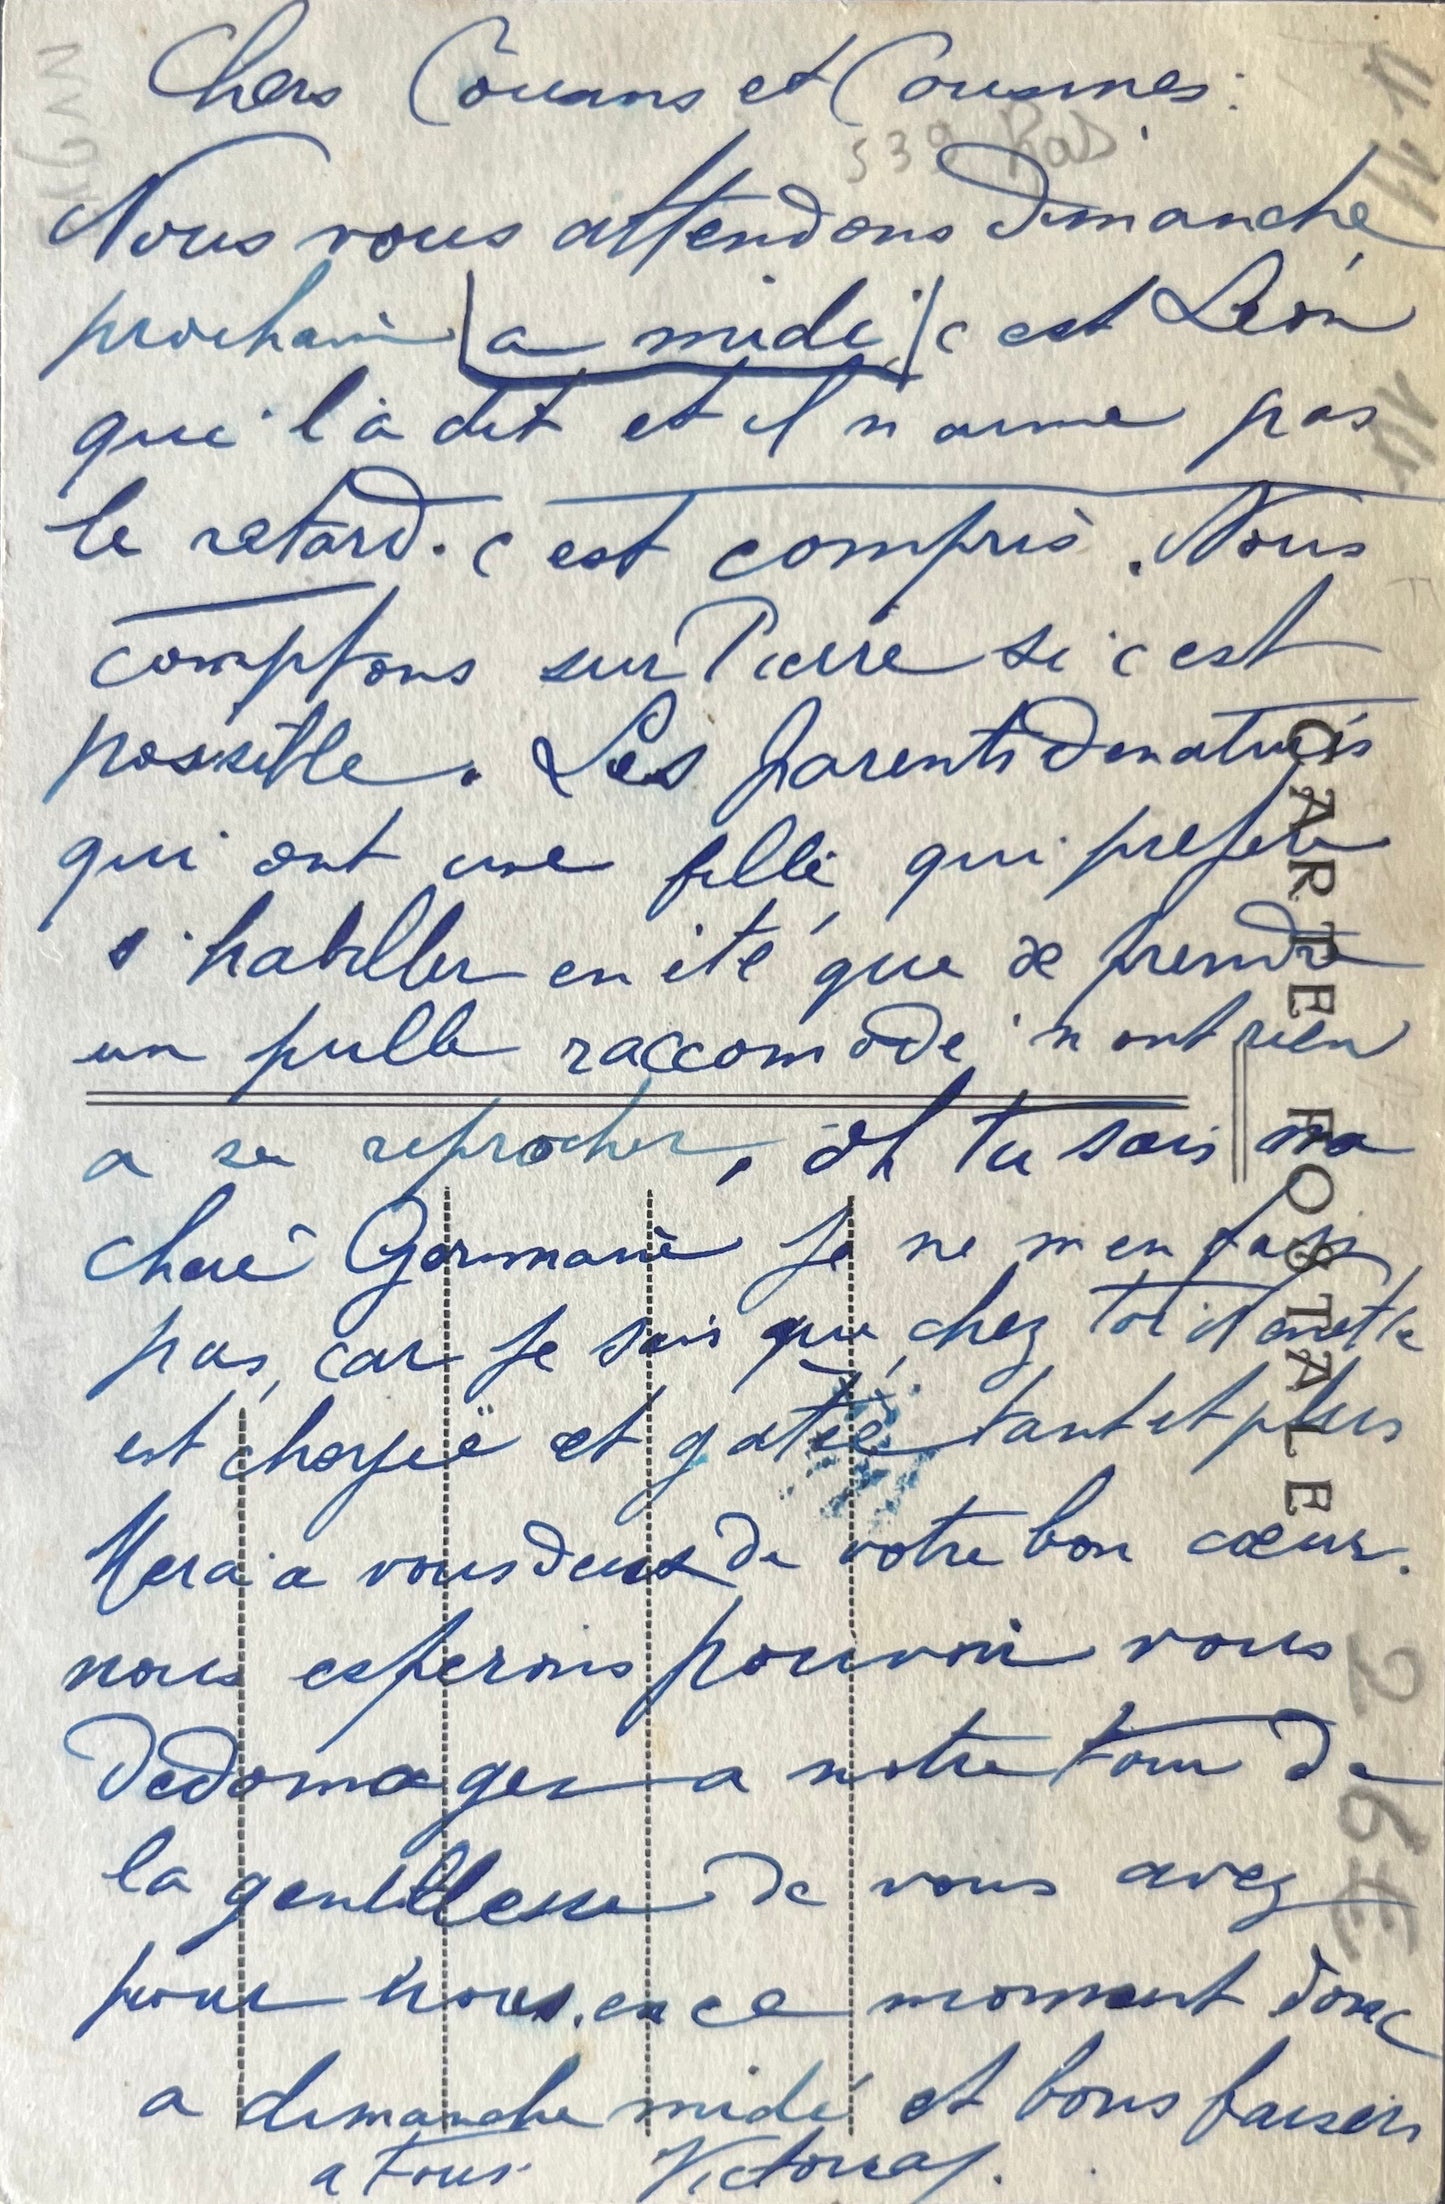 Chers Cousins et Cousines :
Nous vous attendons dimanche
prochain a midi c est Léon
qui l'a dit et il n aime pas
le retard. c est compris. Nous
comptons sur Pierre si c est
possible. Les parents denaturés
qui ont une fille qui prefere
s'habiller en été que de prendre
un pulle raccomodé n ont rien
a se reprocher, oh tu sais ma
cheré Germaine je ne m en fais
pas, car je sais que chez toi
est et gatée tant et plus
Merci a vous deux de votre bon cœur.
nous esperons pouvoir vous
dedomager a notre tour de
la gentillesse de vous avez
pour nous. en ce moment donc
a dimanche midi et bons baisers
a tous
CARTE POSTALE
539
26E